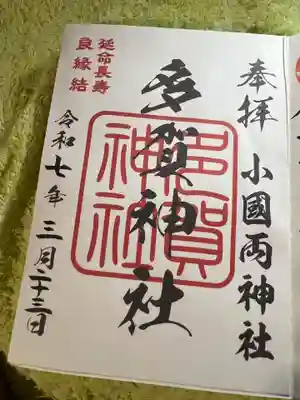 奉拝
小國両神社
多賀神社
多賀
神社
延命長寿
良縁結
令和七年三月二十三日